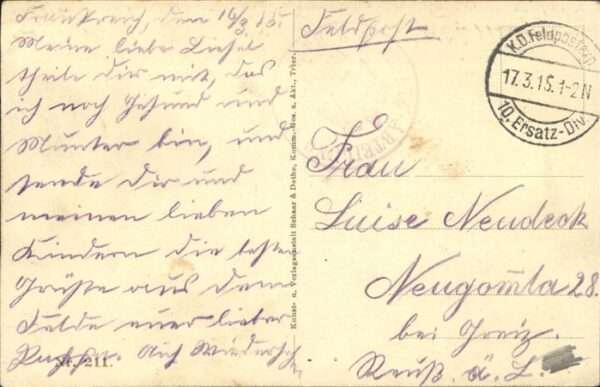 Frankreich, den 16/3 15.
Meine liebe Liesel
theile dir mit, das
ich noch Gesund und
Munter bin, und
sende dir und
meinen lieben
Kindern die besten
Grüße aus dem
Felde euer lieber
Auf Wiedersehn
Nr. 211.
Kunst- u. Verlagsanstalt Schaar & Dathe, Komm.-Ges. a. Akt., Trier.
Feldpost
K.D.Feldpostexp.
17.3.15. 1-2N
10. Ersatz-Div.
Frau
Luise Neudeck
Neugomla 28.
bei Greiz.
Reuß. ä. L.